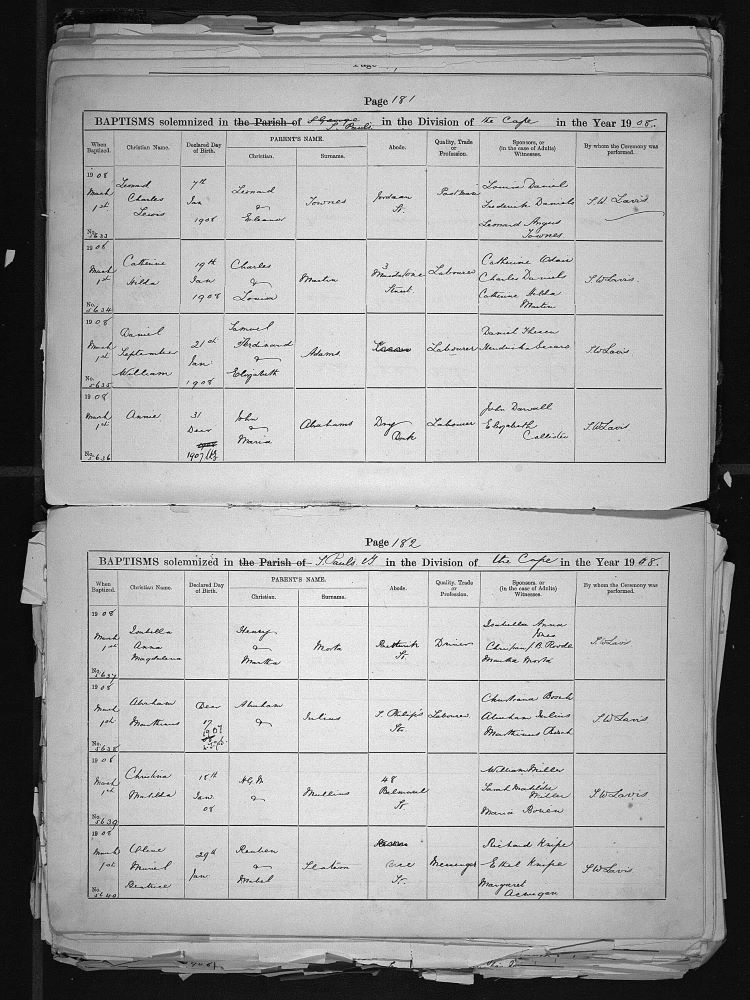 Page 181
BAPTISMS solemnized in the Parish of St Pauls in the Division of the Cape in the Year 1908.
When Baptized. Christian Name. Declared Day of Birth. PARENT'S NAME. Christian. Surname. Abode. Quality, Trade or Profession. Sponsors, or (in the case of Adults) Witnesses. By whom the Ceremony was performed.
1908
March 1st Leonard Charles Lewis 7th Jan 1908 Leonard & Eleanor Townes Jordaan St. Louisa Daniels Frederick Daniels Leonard Angus Townes S.W Lavis
No. 5633
1908
March 1st Catherine Hilda 19th Jan 1908 Charles & Louisa Martin 3 Street Labourer Catherine Adair Charles Daniels Catherine Hilda Martin S.W Lavis.
No. 5634
1908
March 1st Daniel September William 21st Jan 1908 Samuel Ferdinand & Elizabeth Adams Labourer Daniel Hendricka S.W Lavis
No. 5635
1908
March 1st Annie 31 Decr 1907 John & Maria Abrahams Dry Dock Labourer John Elizabeth Callister S.W Lavis
No. 5636
Page 182
BAPTISMS solemnized in the Parish of S. Pauls in the Division of the Cape in the Year 1908.
When Baptized. Christian Name. Declared Day of Birth. PARENT'S NAME. Christian. Surname. Abode. Quality, Trade or Profession. Sponsors, or (in the case of Adults) Witnesses. By whom the Ceremony was performed.
1908
March 1st Isabella Anna Magdalena Henry & Martha Morta St. Driver Isabella Anna Jones B. Roode Martha Morta S.W Lavis
No. 5637
1908
March 1st Abraham Marthinus Decr 17 1907 Abraham & Julius S. Philip's St. Labourer Christiana Bosch Abraham Julius Marthinus S.W Lavis
No. 5638
1908
March 1st Christina Matilda 18th Jan 08 & Mullins 48 Balmoral St. William Miller Sarah Matilda Miller Maria S.W Lavis
No. 5639
1908
March 1st Olive Muriel Beatrice 29th Jan Reuben & Mabel St. Messenger Richard Knipe Ethel Knipe Margaret S.W Lavis
No. 5640